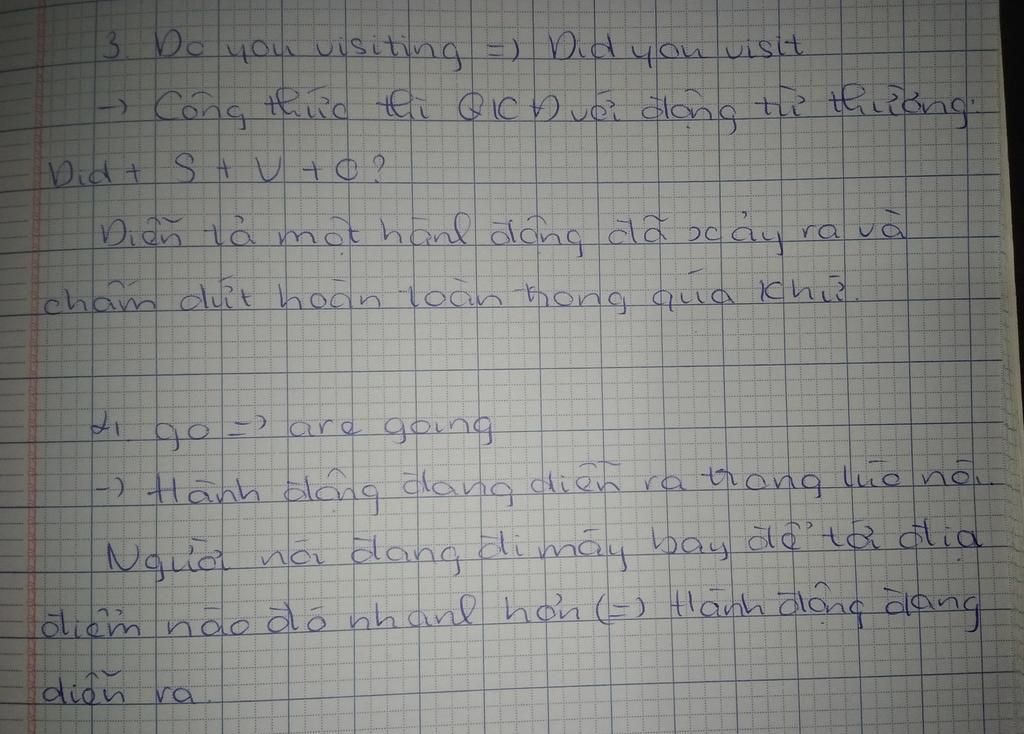 3. Do you visiting => Did you visit
-> Công thức thì QKĐ với động từ thường:
Did + S + V + O?
Diễn tả một hành động đã xảy ra và
chấm dứt hoàn toàn trong quá khứ.
4. go => are going
-> Hành động đang diễn ra trong lúc nói.
Người nói đang đi máy bay để tới địa
điểm nào đó nhanh hơn (=) Hành động đang
diễn ra.